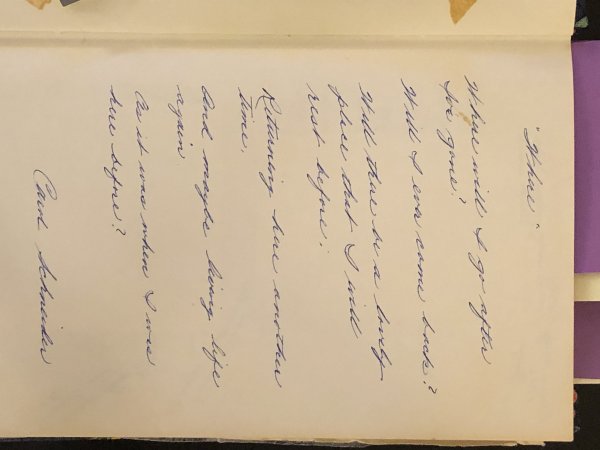 "Where"
Where will I go after
I've gone?
Will I ever come back?
Will there be a lovely
place that I will
rest before,
Returning here another
time,
And maybe living life
again
As it was when I was
here before?
Carol Schneider